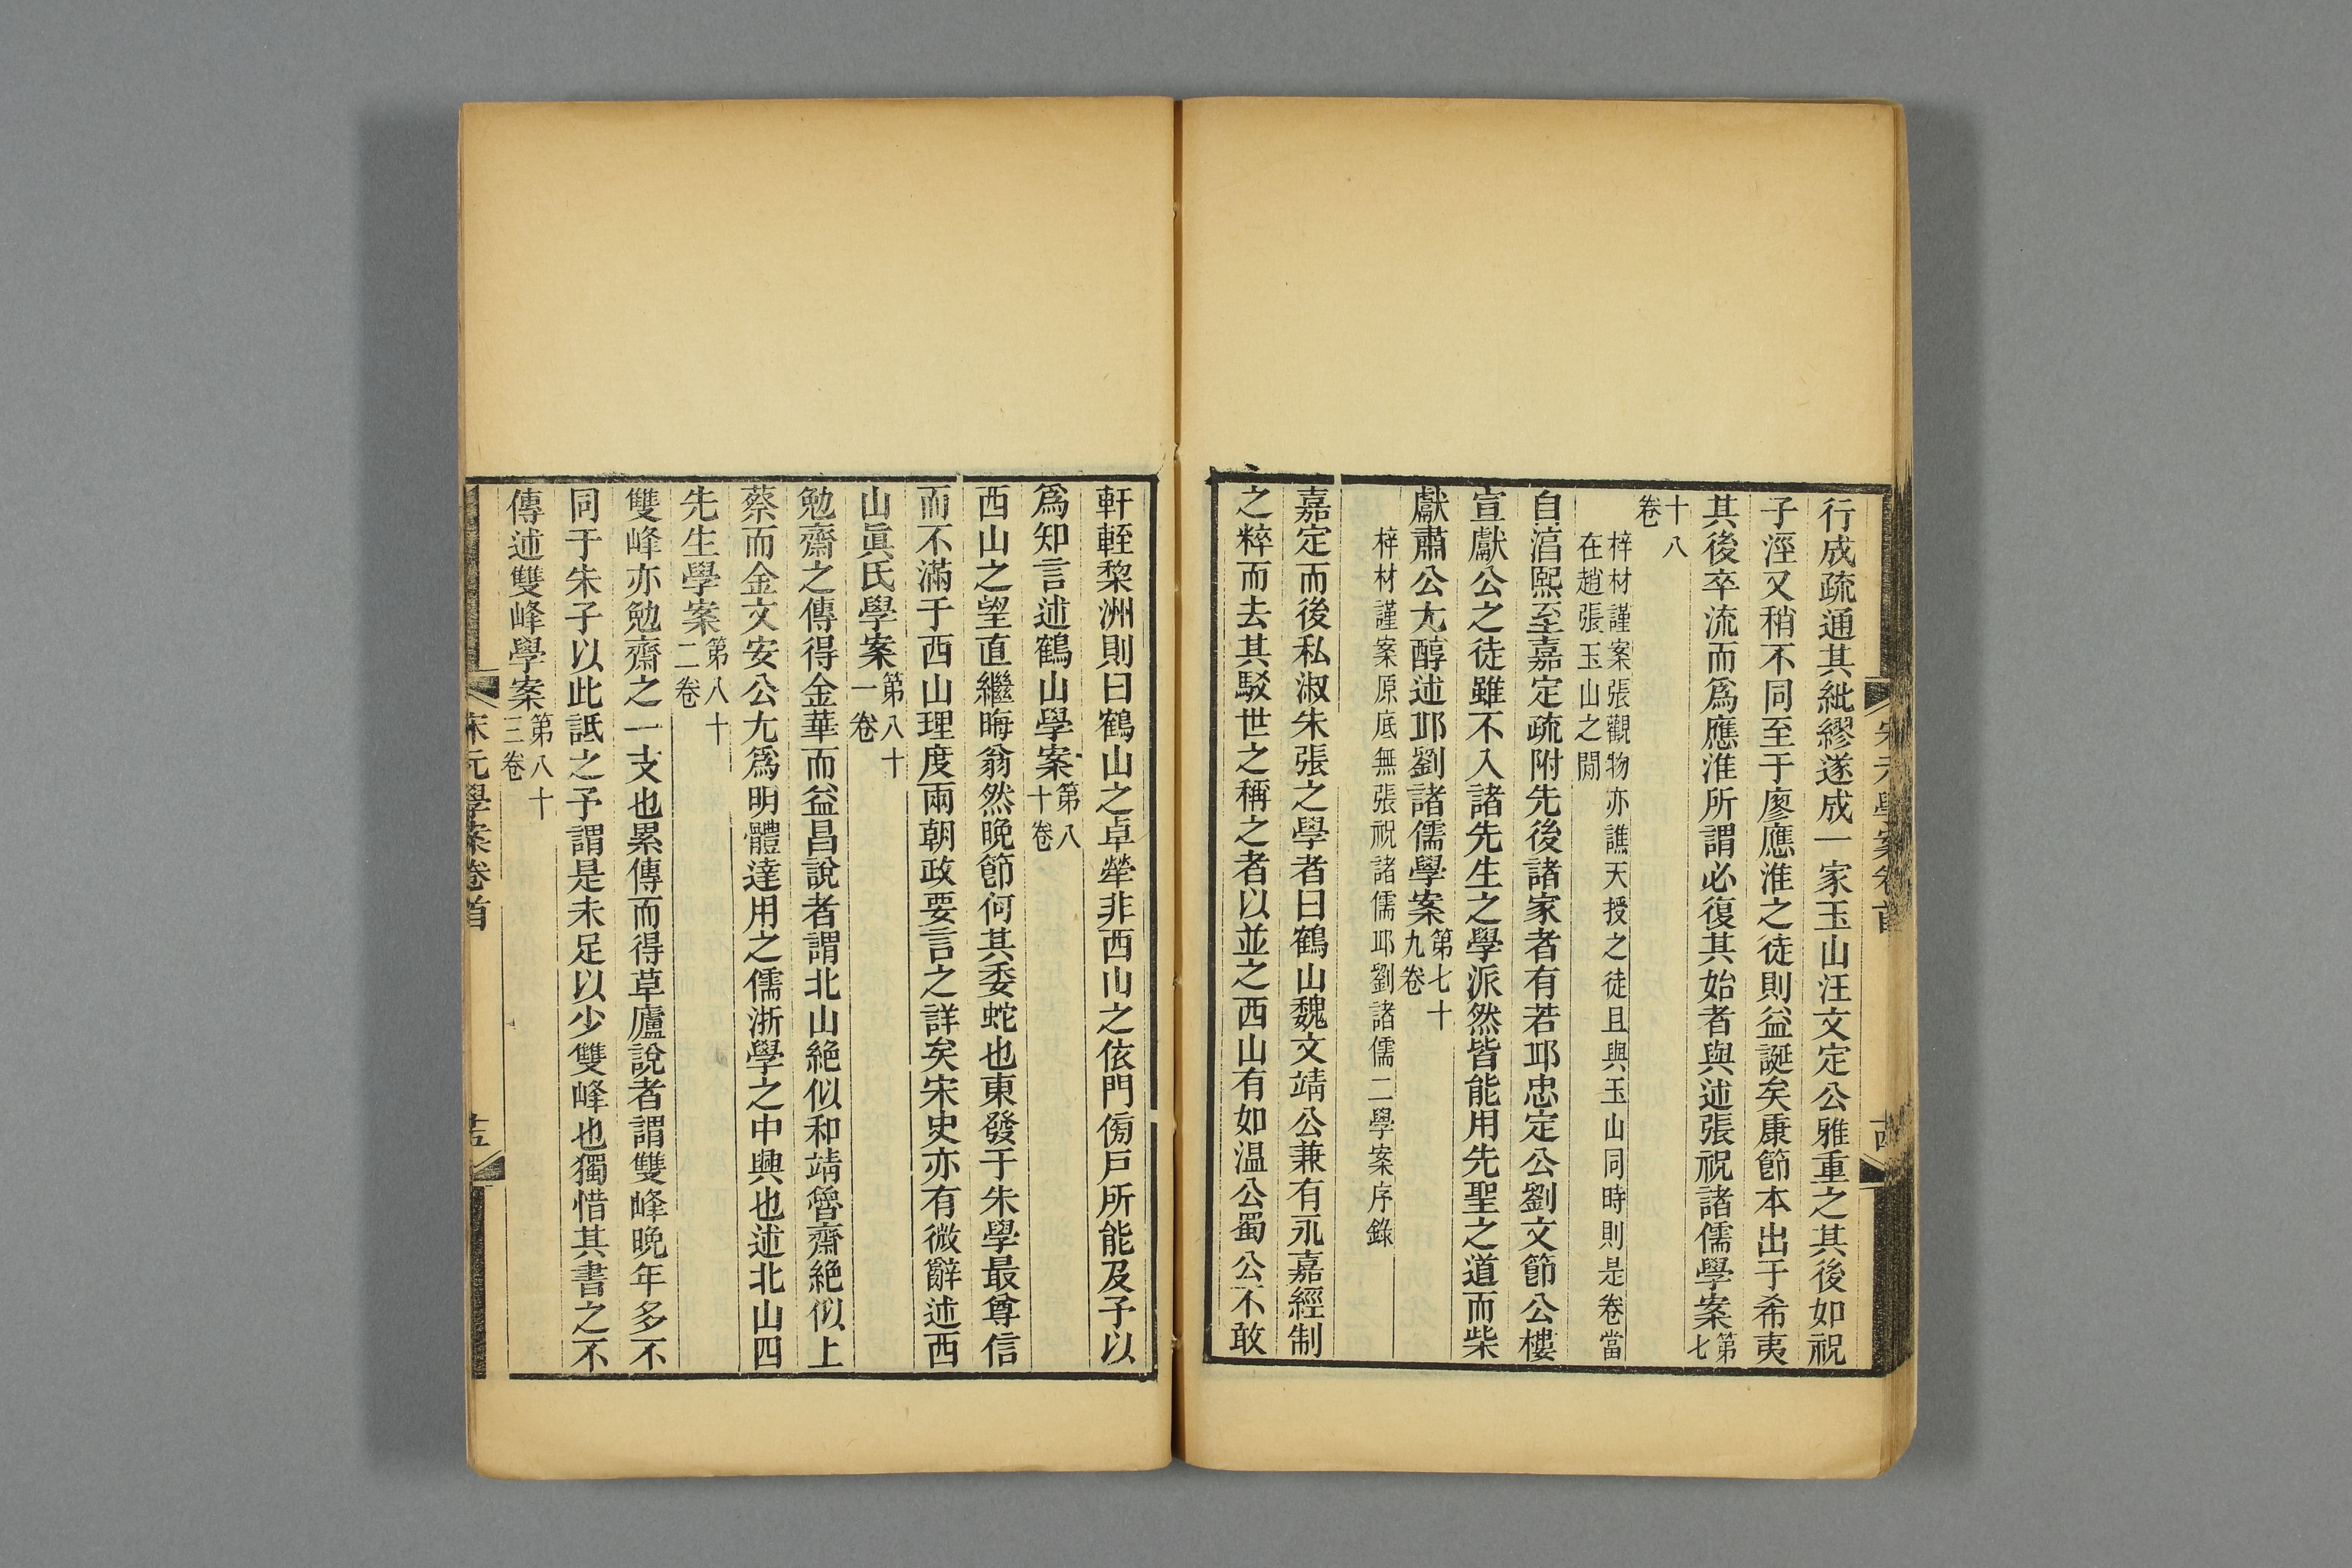 行成疏通其紕繆遂成一家玉山汪文定公雅重之其後如祝
子涇又稍不同至于廖應淮之徒則益誕矣康節本出于希夷
其後卒流而爲應淮所謂必復其始者與述張祝諸儒學案第七
十八卷
梓材謹案張觀物亦譙天授之徒且與玉山同時則是卷當
在趙張玉山之閒
自湻熙至嘉定疏附先後諸家者有若邱忠定公劉文節公樓
宣獻公之徒雖不入諸先生之學派然皆能用先聖之道而柴
獻肅公尢醇述邱劉諸儒學案第七十九卷
梓材謹案原底無張祝諸儒邱劉諸儒二學案序錄
嘉定而後私淑朱張之學者曰鶴山魏文靖公兼有永嘉經制
之粹而去其駁世之稱之者以並之西山有如温公蜀公不敢
宋元學案卷首
十四
軒輊黎洲則曰鶴山之卓犖非西山之依門傍戸所能及予以
爲知言述鶴山學案第八十卷
西山之望直繼晦翁然晚節何其委蛇也東發于朱學最尊信
而不滿于西山理度兩朝政要言之詳矣宋史亦有微辭述西
山眞氏學案第八十一卷
勉齋之傳得金華而益昌說者謂北山絶似和靖魯齋絶似上
蔡而金文安公尢爲明體達用之儒浙學之中興也述北山四
先生學案第八十二卷
雙峰亦勉齋之一支也累傳而得草廬說者謂雙峰晚年多不
同于朱子以此詆之予謂是未足以少雙峰也獨惜其書之不
傳述雙峰學案第八十三卷
宋元學案卷首
十五